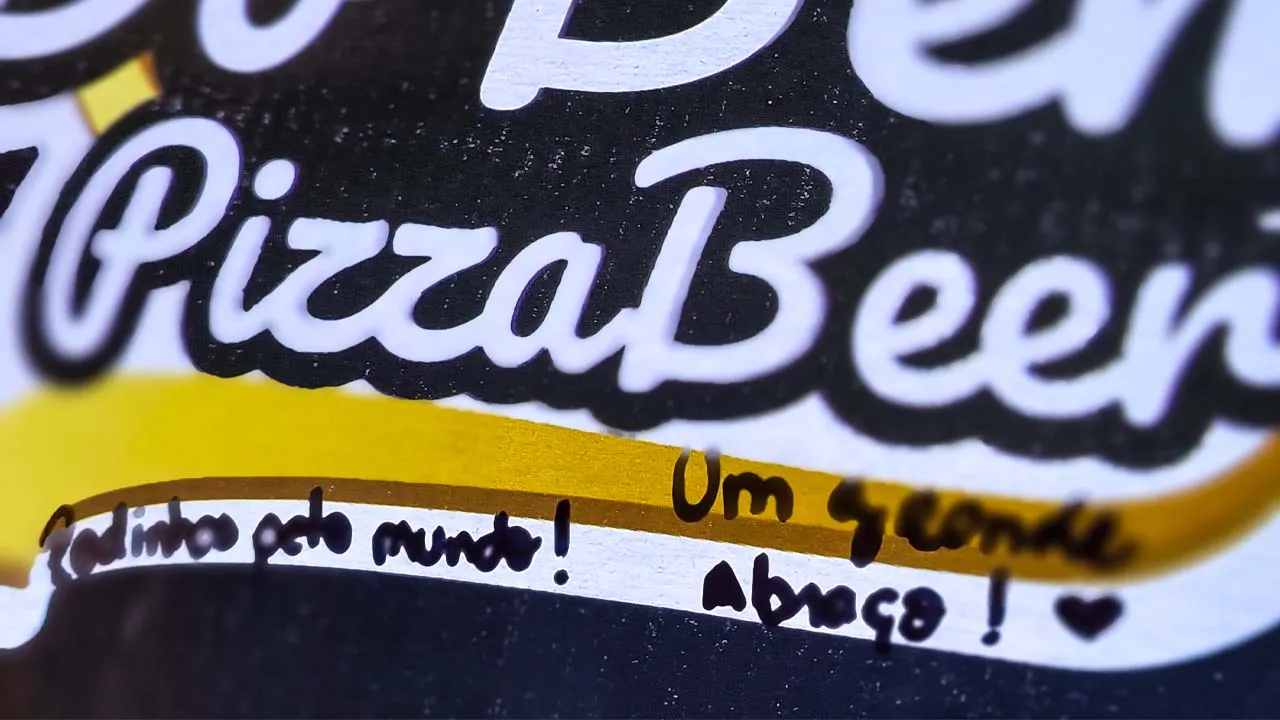 PizzaBeer
pelo mundo!
Um grande
Abraço!